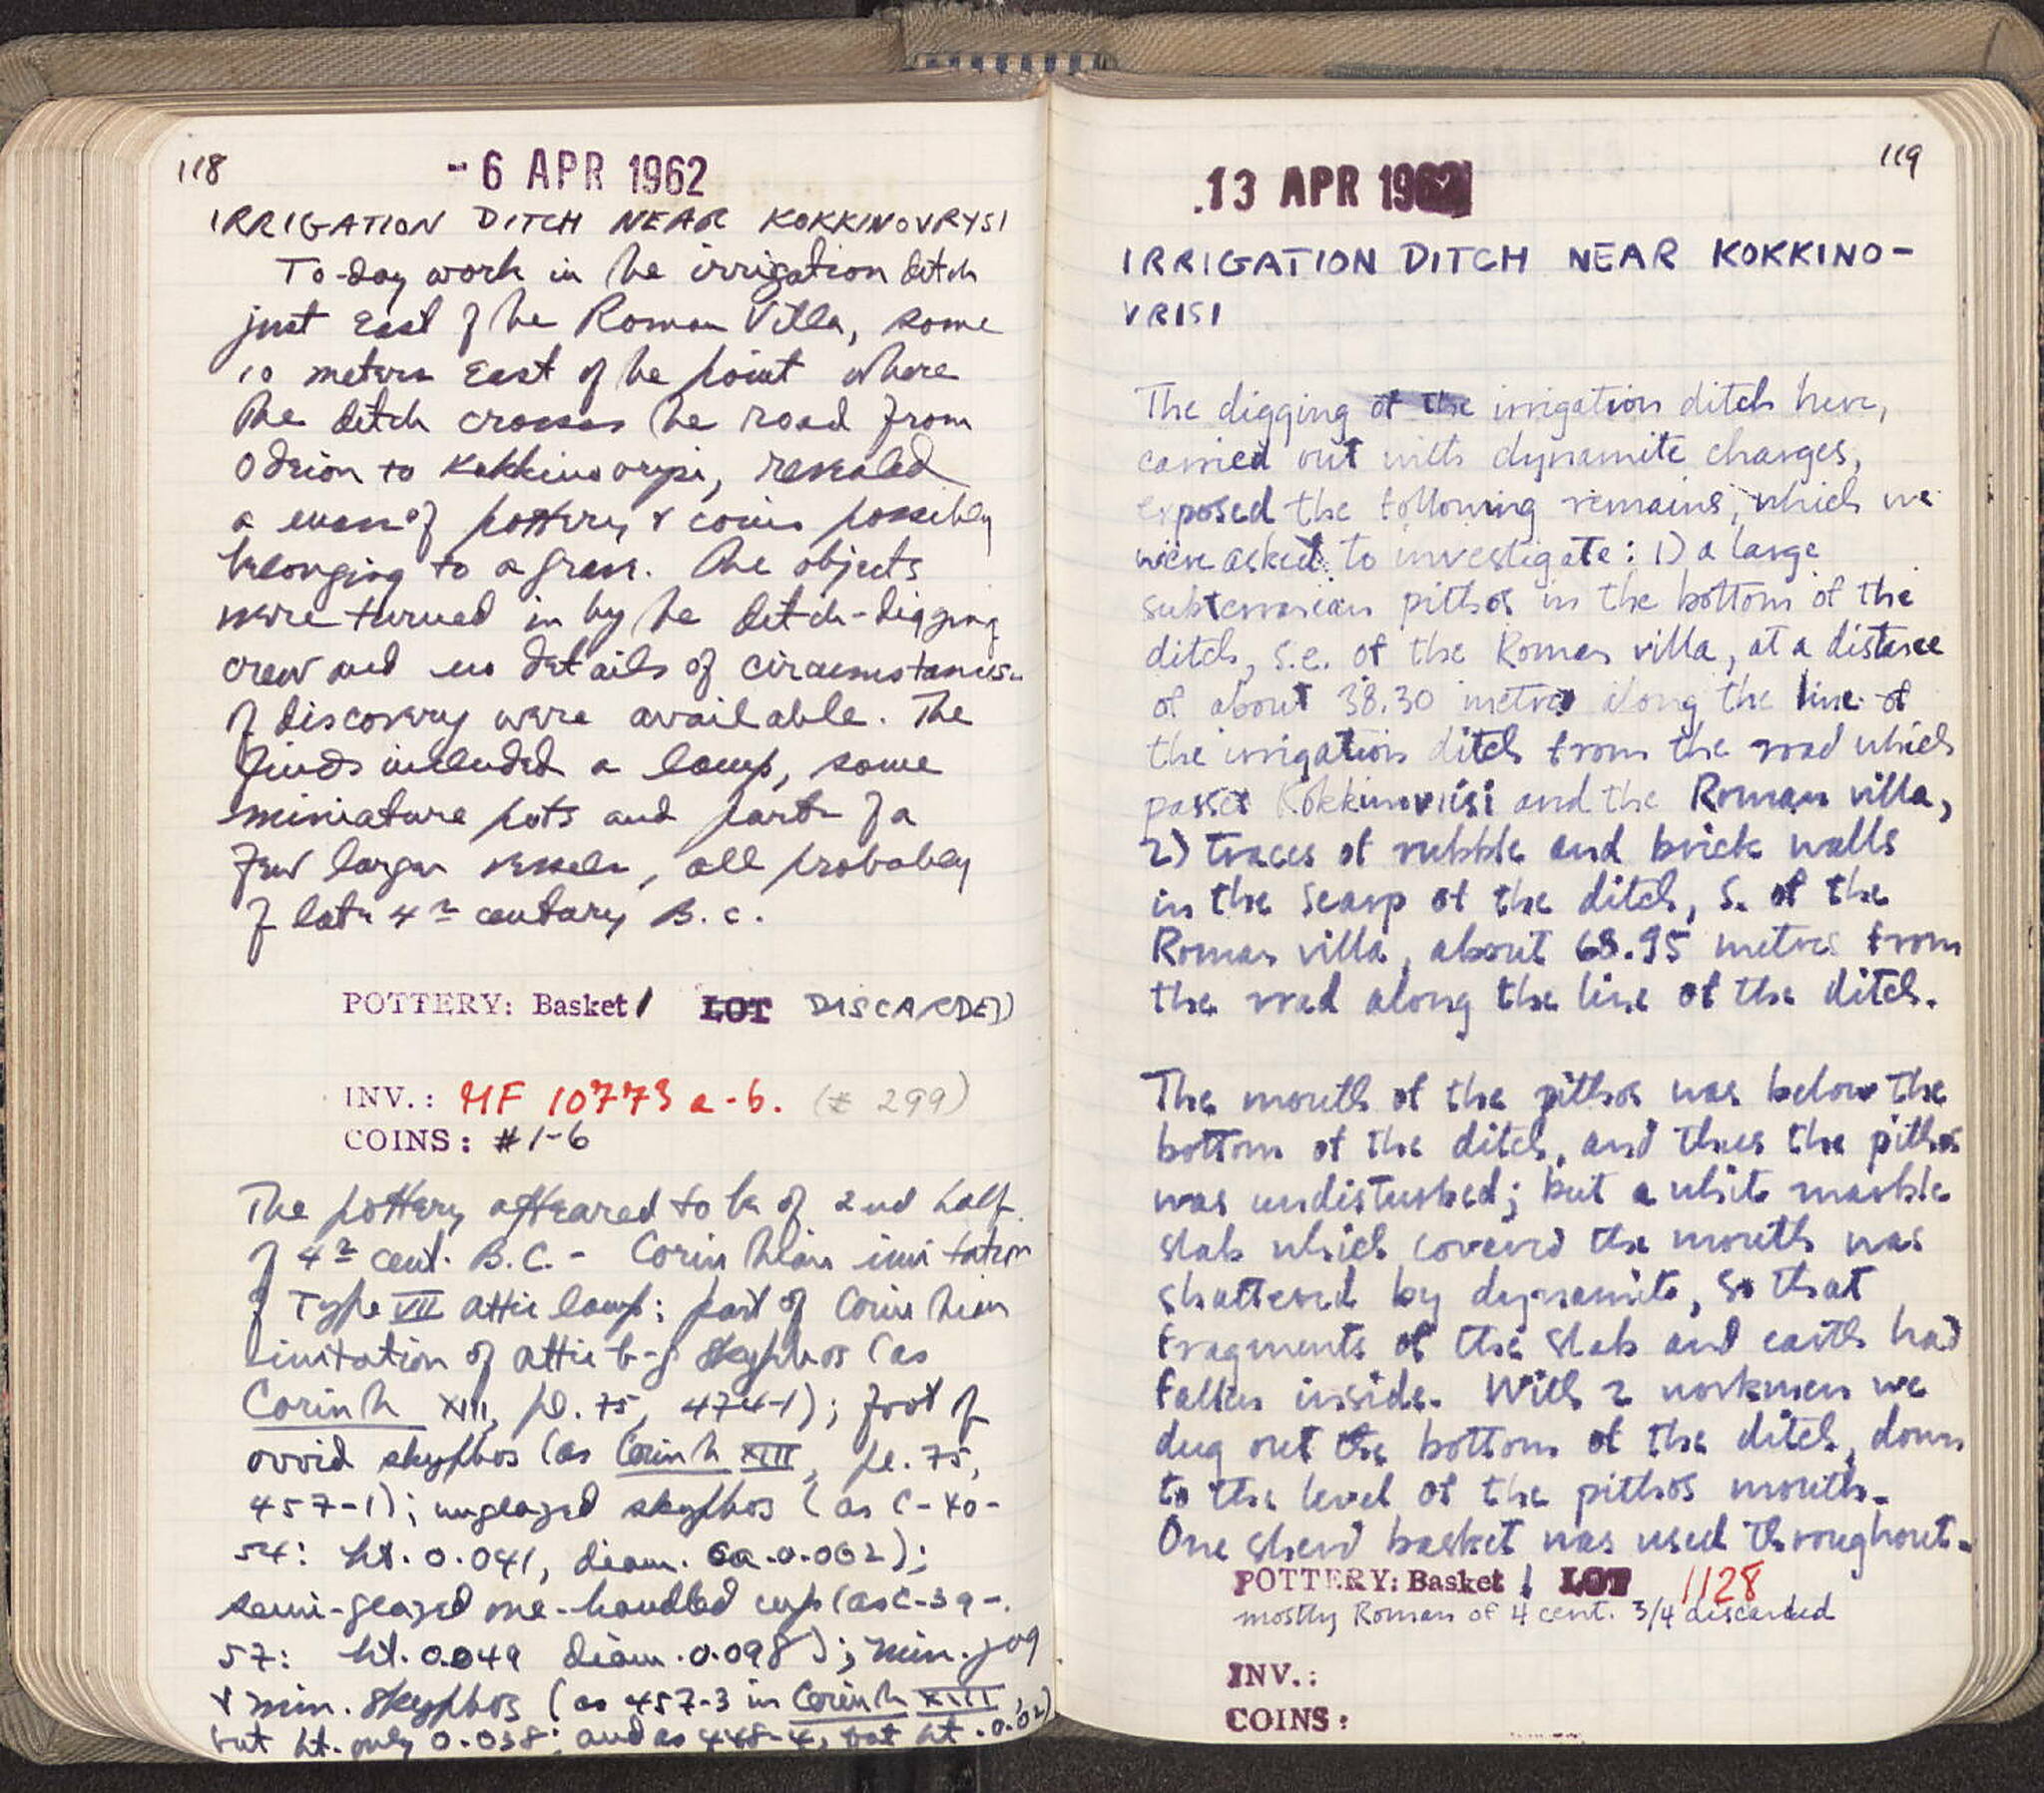 118
- 6 APR 1962
IRRIGATION DITCH NEAR KOKKINOVRYSI
To-day work in the irrigation ditch
just East of the Roman Villa, some
10 meters East of the point where
the ditch crosses the road from
Odeion to Kokkinovrysi, revealed
a mass of pottery & coins possibly
belonging to a grave. The objects
were turned in by the ditch-digging
crew and no details of circumstances
of discovery were available. The
finds included a lamp, some
miniature pots and parts of a
few larger vessels, all probably
of late 4th century B.C.
POTTERY: Basket 1 LOT DISCARDED
INV.: MF 10773 a-b. (# 299)
COINS: #1-6
The pottery appeared to be of 2nd half
of 4th cent. B.C. - Corinthian imitation
of Type VII Attic lamp; part of Corinthian
imitation of Attic b-g skyphos (as
Corinth XIII, pl. 75, 474-1); foot of
ovoid skyphos (as Corinth XIII, pl. 75,
457-1); unglazed skyphos (as C-40-
54: ht. 0.041, diam. ca. 0.062);
semi-glazed one-handled cup (as C-39-
57: ht. 0.049 diam. 0.098); min. jug
& min. skyphos (as 457-3 in Corinth XIII,
but ht. only 0.038; and as 448-4, but ht. 0.02)
119
13 APR 1962
IRRIGATION DITCH NEAR KOKKINO-
VRISI
The digging of the irrigation ditch here,
carried out with dynamite charges,
exposed the following remains, which we
were asked to investigate: 1) a large
subterranean pithos in the bottom of the
ditch, S.E. of the Roman villa, at a distance
of about 38.30 metres along the line of
the irrigation ditch from the road which
passes Kokkinovrisi and the Roman villa,
2) traces of rubble and brick walls
in the scarp of the ditch, S. of the
Roman villa, about 68.95 metres from
the road along the line of the ditch.
The mouth of the pithos was below the
bottom of the ditch, and thus the pithos
was undisturbed; but a white marble
slab which covered the mouth was
shattered by dynamite, so that
fragments of the slab and earth had
fallen inside. With 2 workmen we
dug out the bottom of the ditch, down
to the level of the pithos mouth.
One sherd basket was used throughout.
POTTERY: Basket 1 LOT 1128
mostly Roman of 4 cent. 3/4 discarded
INV.:
COINS: